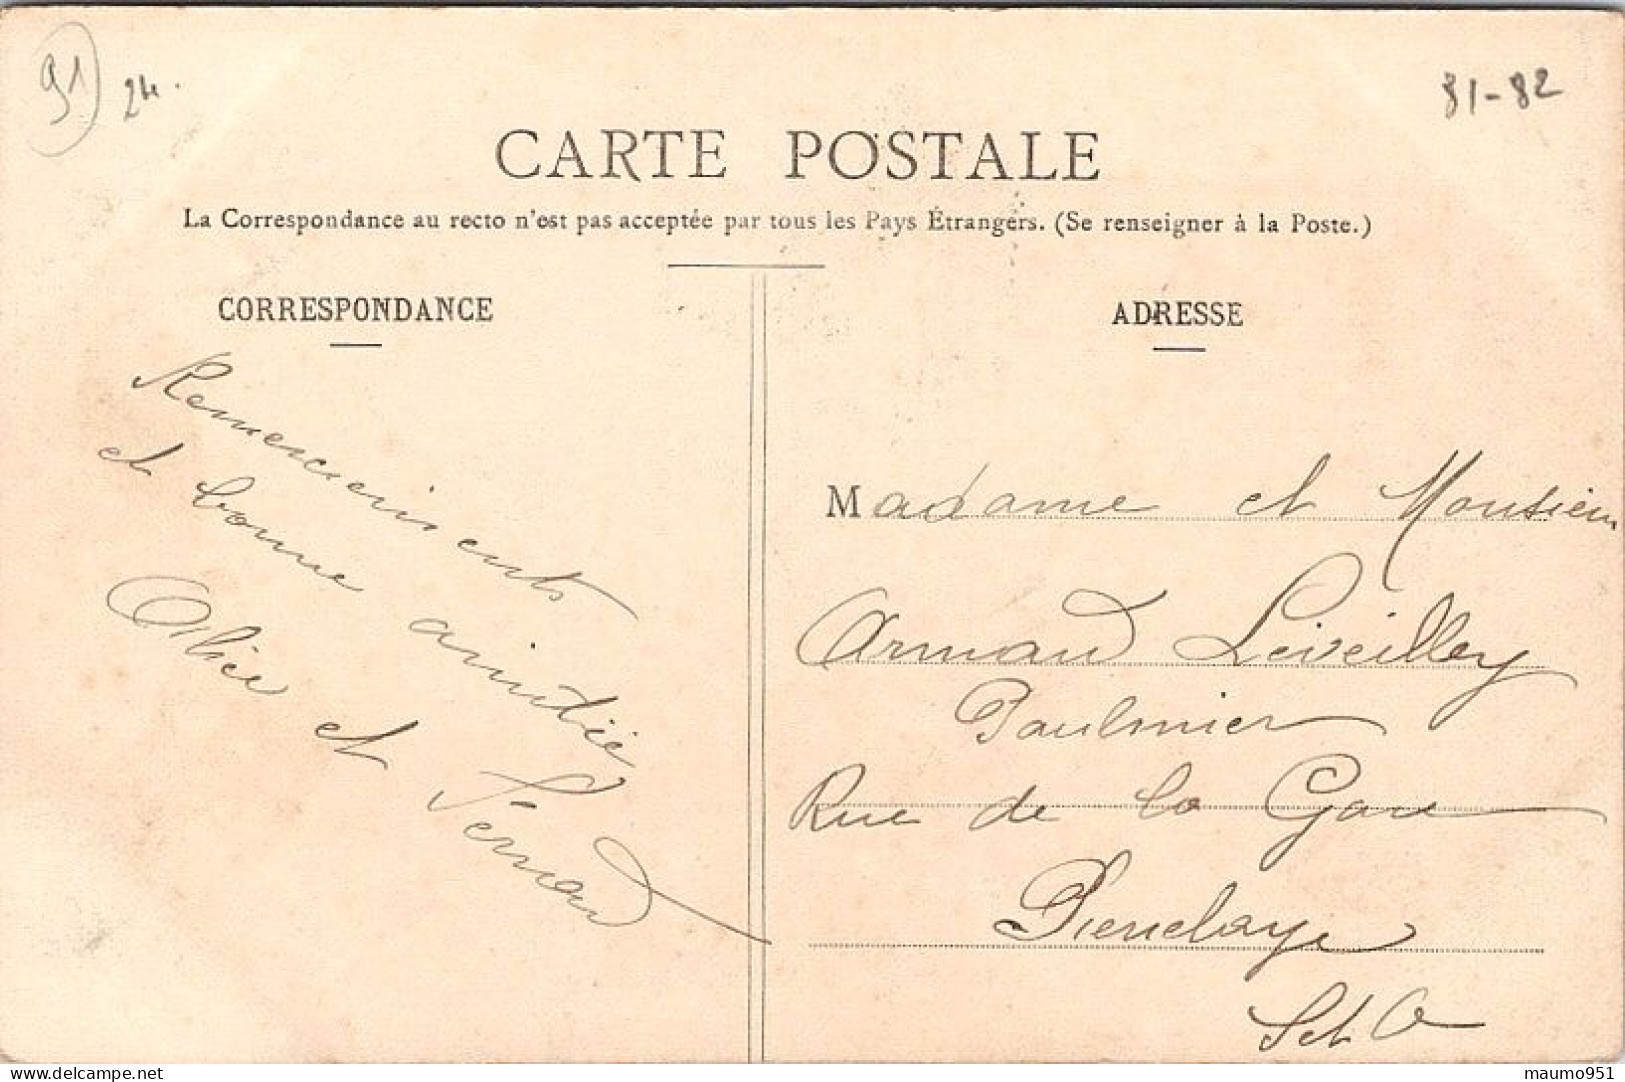 91) 24.
81-82
CARTE POSTALE
La Correspondance au recto n'est pas acceptée par tous les Pays Étrangers. (Se renseigner à la Poste.)
CORRESPONDANCE
Remerciements
et bonne amitié
Alice et Fernand
ADRESSE
Madame et Monsieur
Armand Léveilley
Paulmier
Rue de la Gare
Pierrelaye
S et O
delcampe.net
maumo951